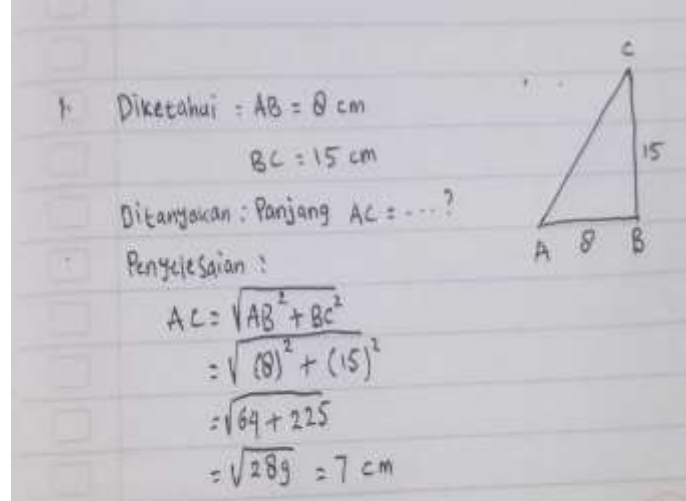 1. Diketahui : AB = 8 cm
BC = 15 cm
Ditanyakan : Panjang AC = ... ?
Penyelesaian :
AC = √AB² + BC²
= √(8)² + (15)²
= √64 + 225
= √289 = 7 cm
C
15
A 8 B